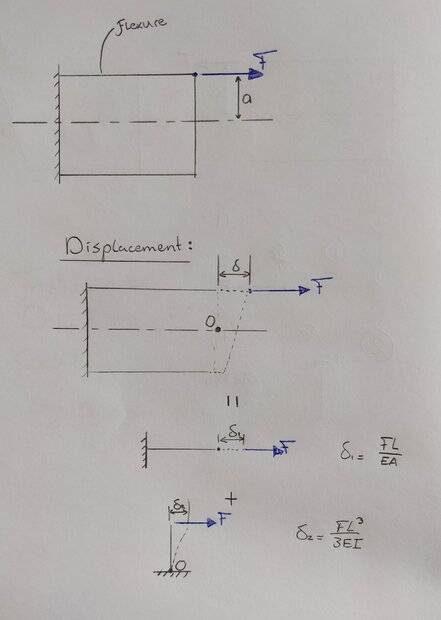 Flexure
F
a
Displacement:
δ
F
O
=
δ₁
F
δ₁ = FL/EA
+
δ₂
F
O
δ₂ = FL³/3EI